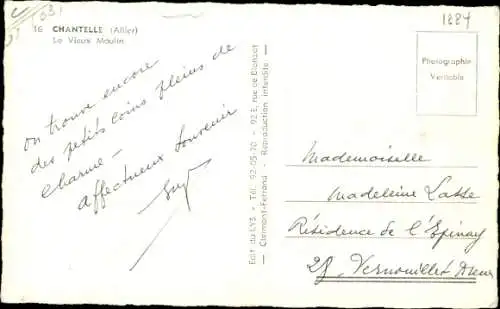 1884
16 CHANTELLE (Allier)
Le Vieux Moulin
on trouve encore
des petits coins pleins de
charme –
affectueux souvenir
Edit. du LYS • Tél. : 92-05-10 • 92 E, rue de Blanzat
Clermont-Ferrand - Reproduction interdite -
Photographie
Véritable
Mademoiselle
Madeleine Lasse
Résidence de l'Epinay
28 Vernouillet